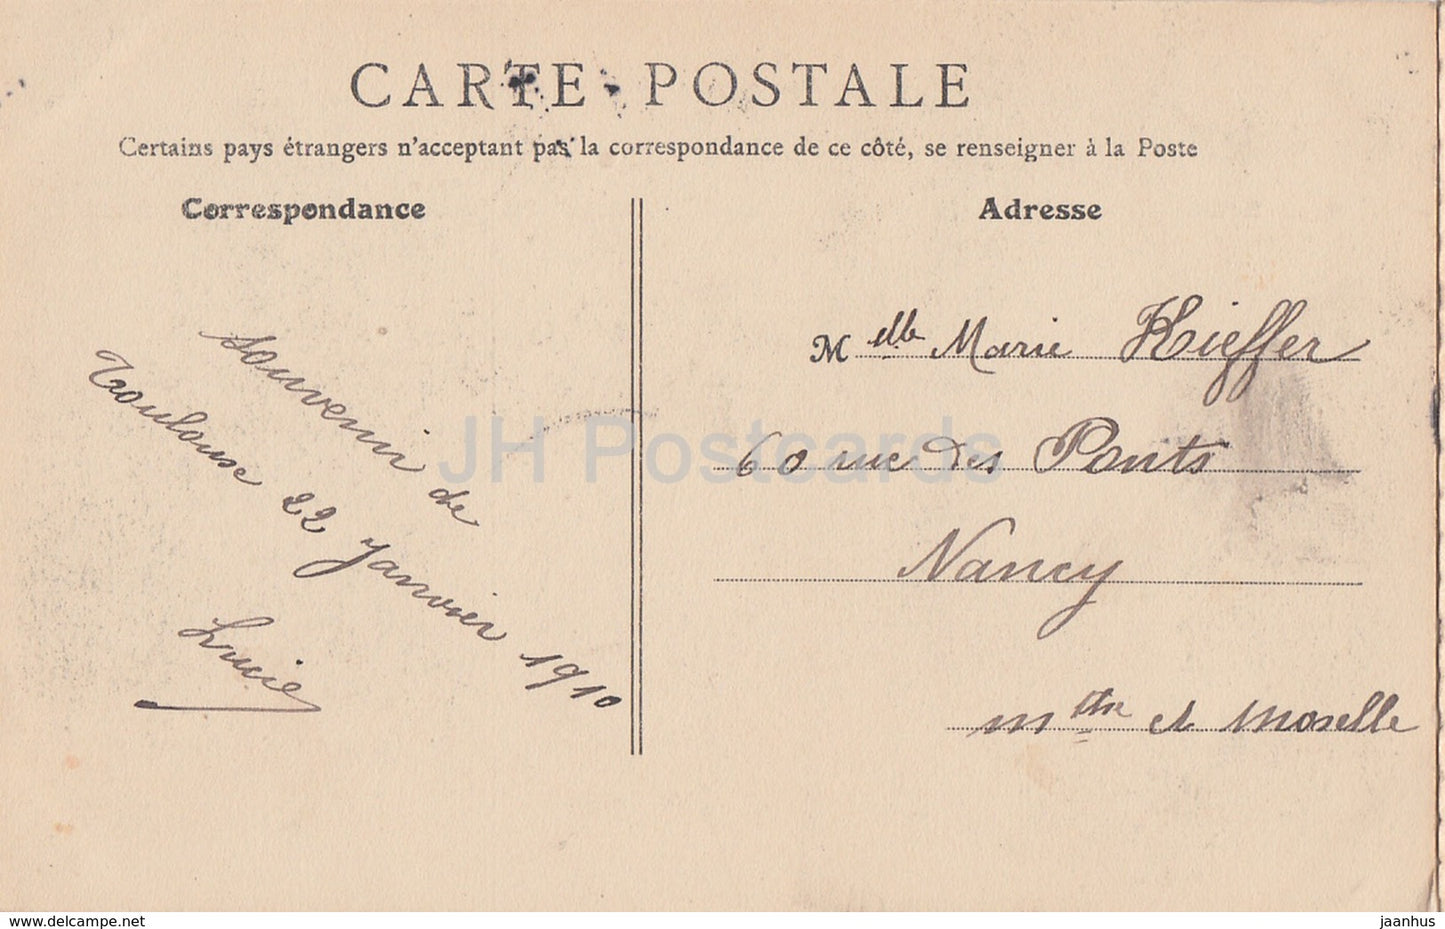 CARTE POSTALE
Certains pays étrangers n'acceptant pas la correspondance de ce côté, se renseigner à la Poste
Correspondance
souvenir de
Toulouse 22 janvier 1910
Lucie
Adresse
Melle Marie Kieffer
60 rue des Ponts
Nancy
Mthe et Moselle
JH Postcards
www.delcampe.net
jaanhus